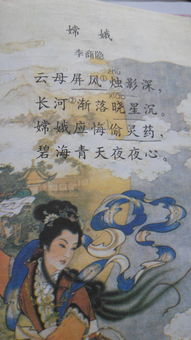 嫦娥
李商隐
zhú
云母屏风①烛影深，
长河②渐落晓星沉。
嫦娥应悔偷灵药，
碧海青天夜夜心。